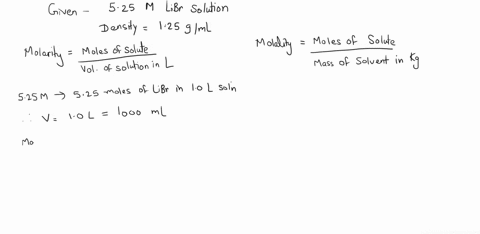 Given - 5.25 M LiBr Solution
Density = 1.25 g/mL
Molarity = Moles of Solute / Vol. of Solution in L
Molality = Moles of Solute / Mass of Solvent in Kg
5.25M → 5.25 moles of LiBr in 1.0 L soln
∴ V = 1.0 L = 1000 mL
Mo